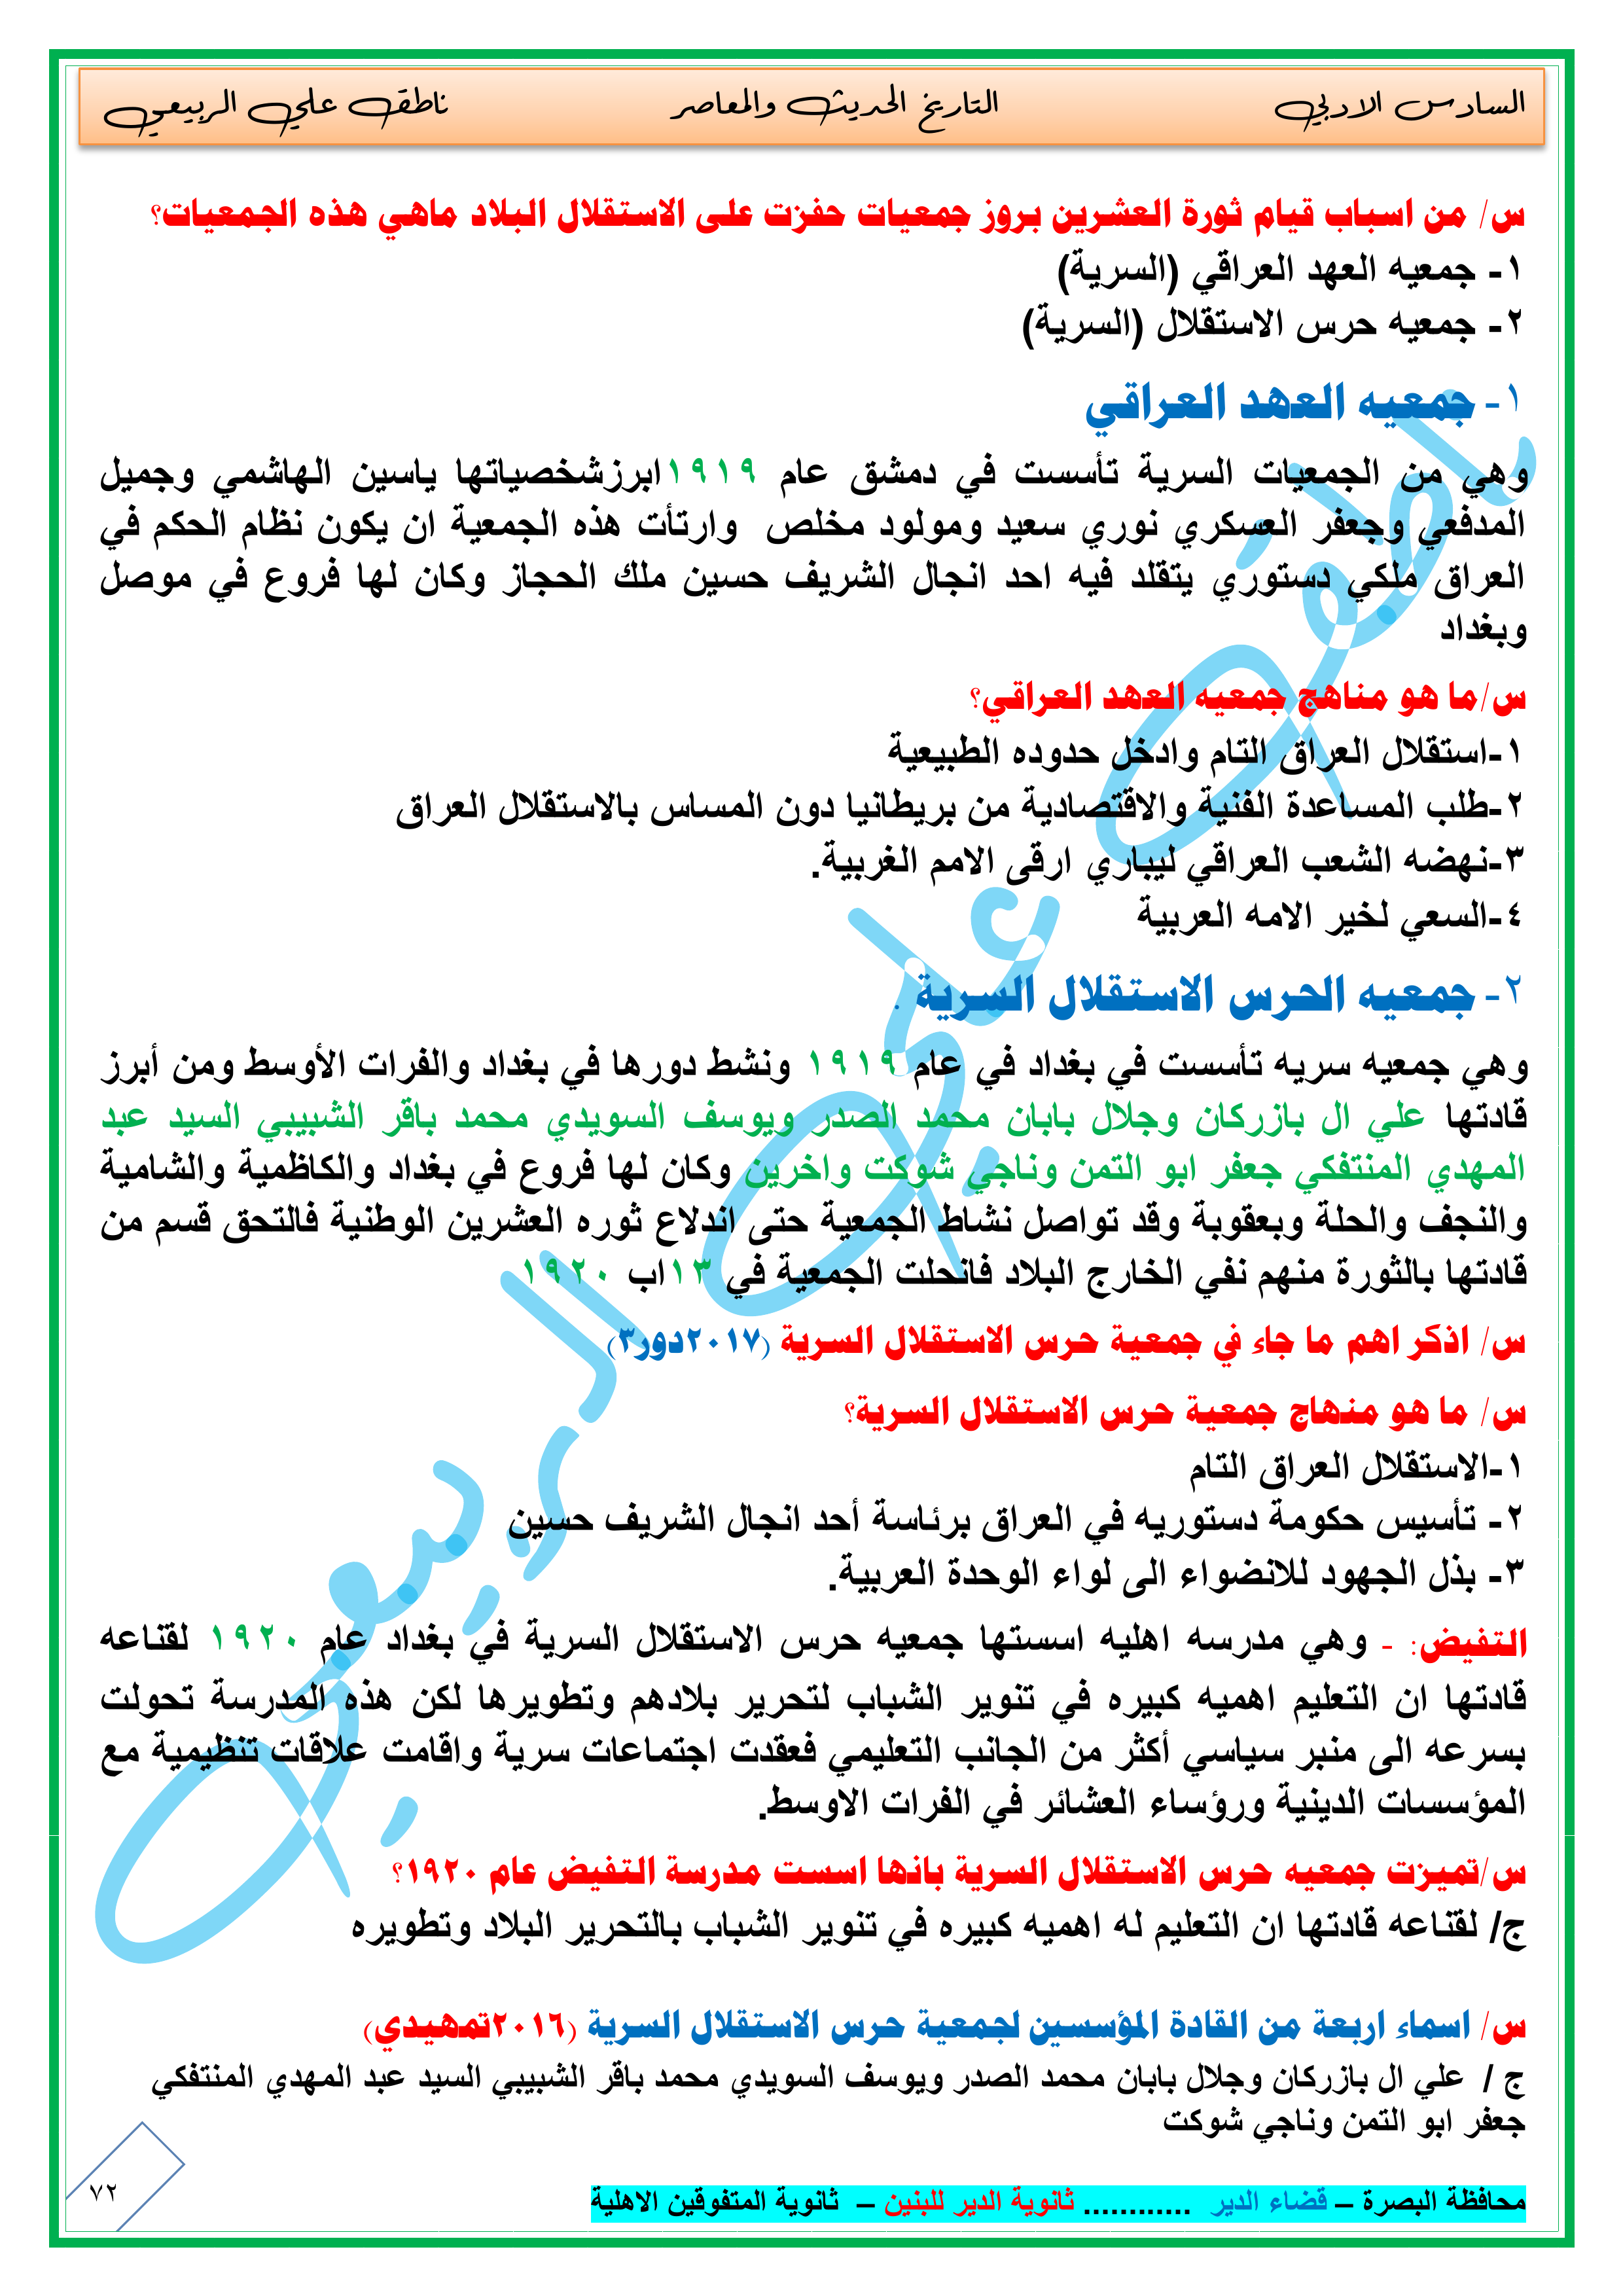 السادس الادبي التاريخ الحديث والمعاصر ناطق علي الربيعي
س/ من اسباب قيام ثورة العشرين بروز جمعيات حفزت على الاستقلال البلاد ماهي هذه الجمعيات؟
١- جمعيه العهد العراقي (السرية)
٢- جمعيه حرس الاستقلال (السرية)
١- جمعيه العهد العراقي
وهي من الجمعيات السرية تأسست في دمشق عام ١٩١٩ابرزشخصياتها ياسين الهاشمي وجميل
المدفعي وجعفر العسكري نوري سعيد ومولود مخلص وارتأت هذه الجمعية ان يكون نظام الحكم في
العراق ملكي دستوري يتقلد فيه احد انجال الشريف حسين ملك الحجاز وكان لها فروع في موصل
وبغداد
س/ما هو مناهج جمعيه العهد العراقي؟
١-استقلال العراق التام وادخل حدوده الطبيعية
٢-طلب المساعدة الفنية والاقتصادية من بريطانيا دون المساس بالاستقلال العراق
٣-نهضه الشعب العراقي ليباري ارقى الامم الغربية.
٤-السعي لخير الامه العربية
٢- جمعيه الحرس الاستقلال السرية .
وهي جمعيه سريه تأسست في بغداد في عام ١٩١٩ ونشط دورها في بغداد والفرات الأوسط ومن أبرز
قادتها علي ال بازركان وجلال بابان محمد الصدر ويوسف السويدي محمد باقر الشبيبي السيد عبد
المهدي المنتفكي جعفر ابو التمن وناجي شوكت واخرين وكان لها فروع في بغداد والكاظمية والشامية
والنجف والحلة وبعقوبة وقد تواصل نشاط الجمعية حتى اندلاع ثوره العشرين الوطنية فالتحق قسم من
قادتها بالثورة منهم نفي الخارج البلاد فانحلت الجمعية في ١٣اب ١٩٢٠
س/ اذكر اهم ما جاء في جمعية حرس الاستقلال السرية (٢٠١٧دور٣)
س/ ما هو منهاج جمعية حرس الاستقلال السرية؟
١-الاستقلال العراق التام
٢- تأسيس حكومة دستوريه في العراق برئاسة أحد انجال الشريف حسين
٣- بذل الجهود للانضواء الى لواء الوحدة العربية.
التفيض: - وهي مدرسه اهليه اسستها جمعيه حرس الاستقلال السرية في بغداد عام ١٩٢٠ لقتناعه
قادتها ان التعليم اهميه كبيره في تنوير الشباب لتحرير بلادهم وتطويرها لكن هذه المدرسة تحولت
بسرعه الى منبر سياسي أكثر من الجانب التعليمي فعقدت اجتماعات سرية واقامت علاقات تنظيمية مع
المؤسسات الدينية ورؤساء العشائر في الفرات الاوسط.
س/تميزت جمعيه حرس الاستقلال السرية بانها اسست مدرسة التفيض عام ١٩٢٠؟
ج/ لقتناعه قادتها ان التعليم له اهميه كبيره في تنوير الشباب بالتحرير البلاد وتطويره
س/ اسماء اربعة من القادة المؤسسين لجمعية حرس الاستقلال السرية (٢٠١٦تمهيدي)
ج / علي ال بازركان وجلال بابان محمد الصدر ويوسف السويدي محمد باقر الشبيبي السيد عبد المهدي المنتفكي
جعفر ابو التمن وناجي شوكت
محافظة البصرة – قضاء الدير ............ ثانوية الدير للبنين – ثانوية المتفوقين الاهلية
٧٢
ناطق علي الربيعي